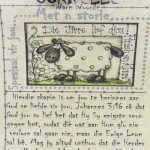 Ware Woorde
Met 'n storie
Spesiaal vir jou
Die Here lief jou!
Hierdie skapie is om jou te herinner aan
God se liefde vir jou. Johannes 3:16 sê dat
God jou so lief het dat Hy Sy enigste seun
gegee het, sodat dié wat aan Hom glo nie
verlore sal gaan nie, maar die Ewige Lewe
sal hê. Mag jy altyd onthou dat die Herder